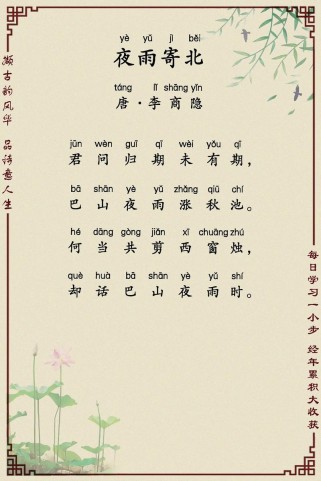 yè yǔ jì běi
夜雨寄北
táng lǐ shāng yǐn
唐·李商隐
jūn wèn guī qī wèi yǒu qī
君问归期未有期，
bā shān yè yǔ zhǎng qiū chí
巴山夜雨涨秋池。
hé dāng gòng jiǎn xī chuāng zhú
何当共剪西窗烛，
què huà bā shān yè yǔ shí
却话巴山夜雨时。
撷古韵风华 品诗意人生
每日学习一小步 经年累积大收获